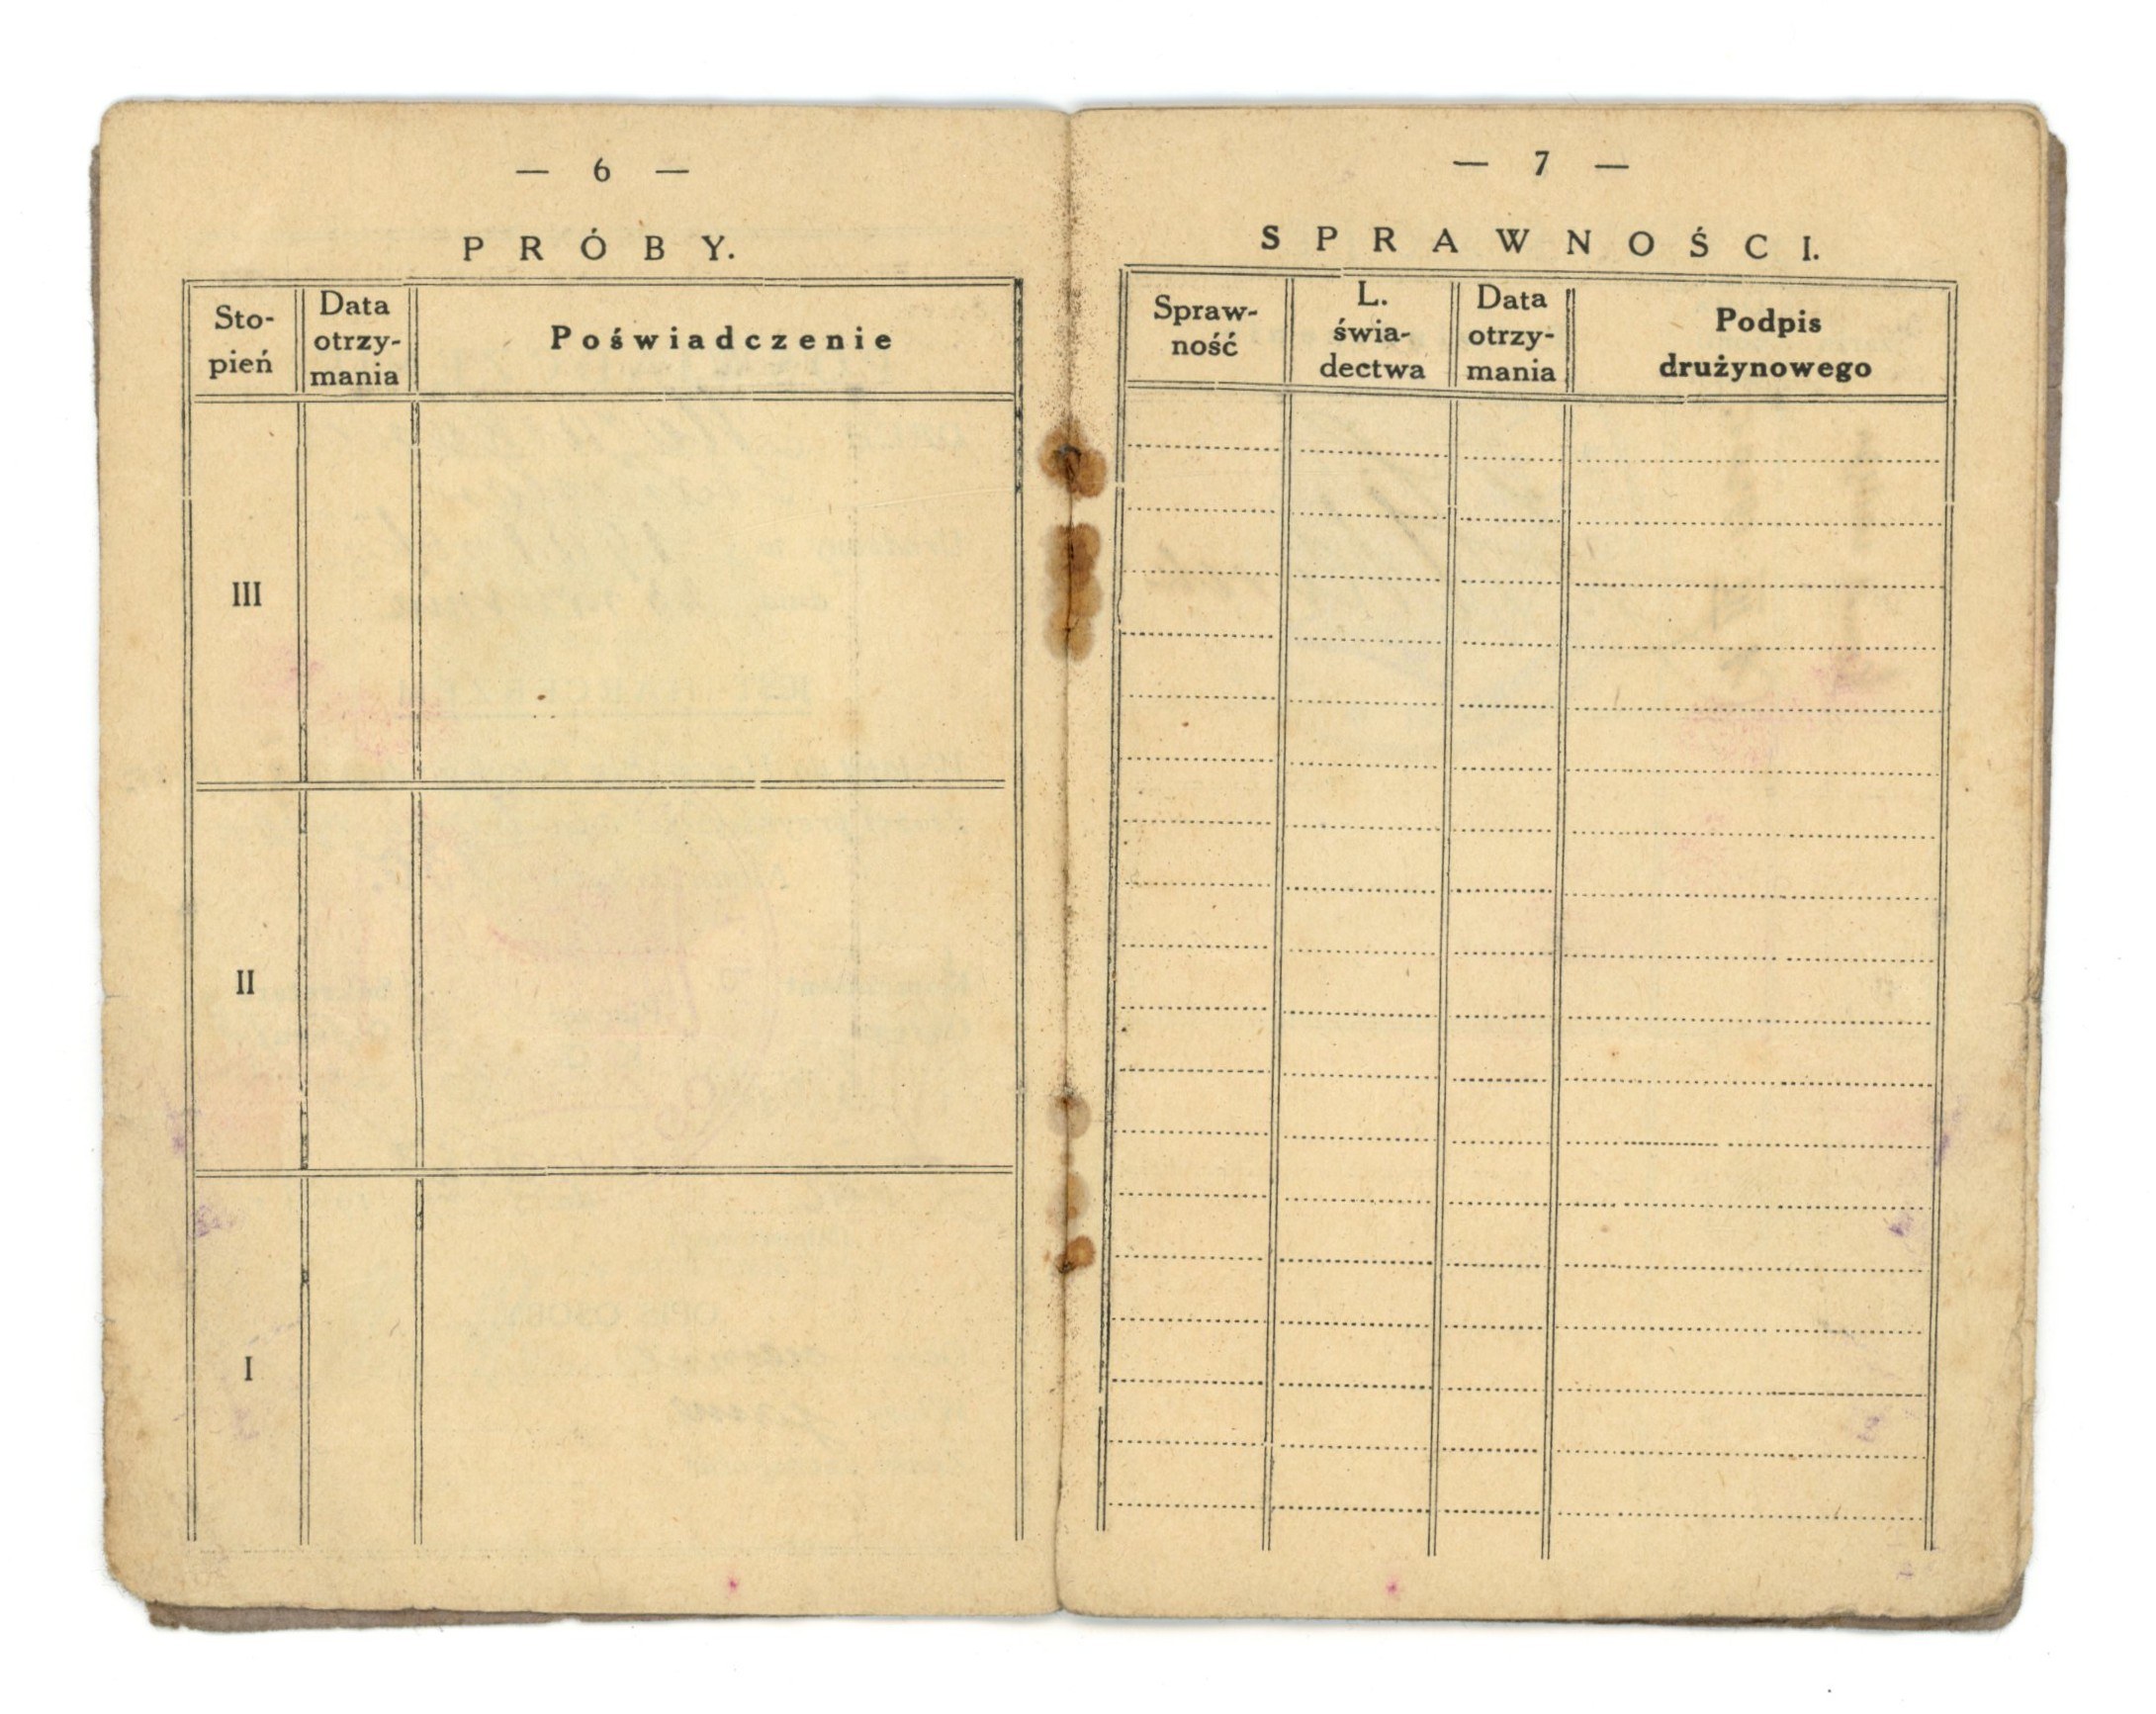 — 6 —
PRÓBY.
Sto-
pień
Data
otrzy-
mania
Poświadczenie
III
II
I
— 7 —
SPRAWNOŚCI.
Spraw-
ność
L.
świa-
dectwa
Data
otrzy-
mania
Podpis
drużynowego